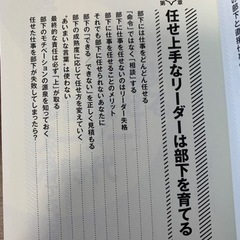 第
章
任せ上手なリーダーは部下を育てる
部下には仕事をどんどん任せる
「命令」ではなく「相談」する
部下に仕事を任せないのはリーダー失格
部下に仕事を任せることのメリット
それでも部下に任せられないあなたに
部下の「できる／できない」を正しく見積もる
部下の成熟度に応じて任せ方を変えていく
「あいまいな言葉」は使わない
最終的な責任は必ず「上」が取る
部下のモチベーションの源泉を知っておく
任せた仕事を部下が失敗してしまったら？